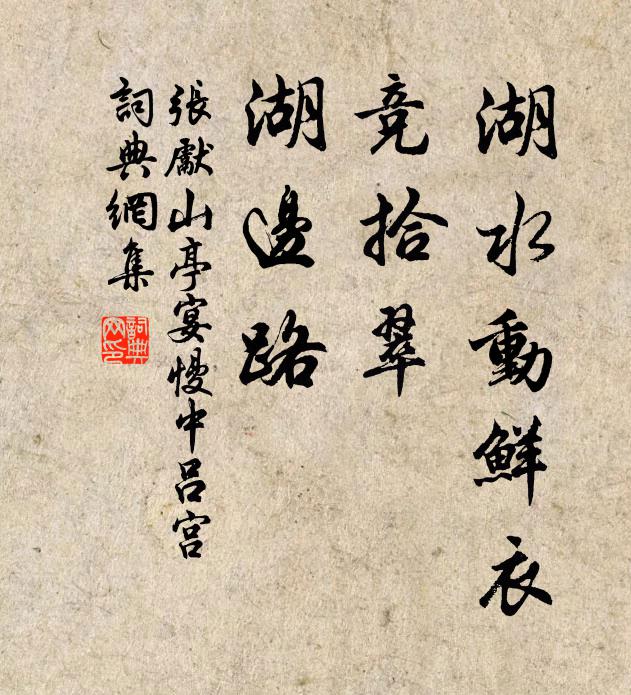 湖水動鮮衣
竞拾翠
湖邊路
張獻山亭宴慢中呂宮
詞典網集
詞典
网印